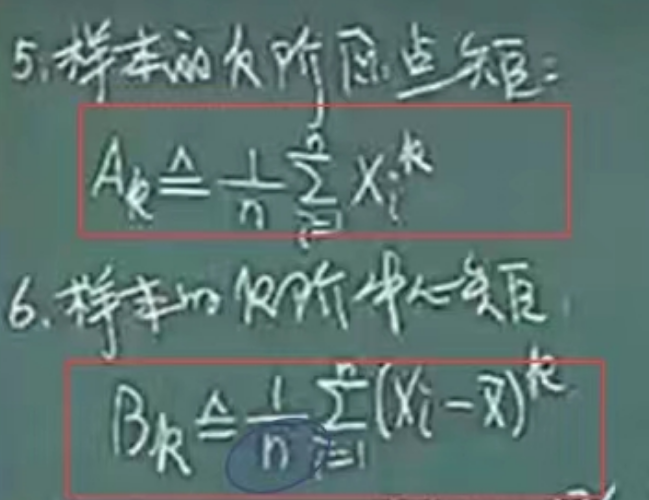 5.样本的k阶原点矩:
A_k ≜ \frac{1}{n} \sum_{i=1}^{n} X_i^k
6.样本的k阶中心矩
B_k ≜ \frac{1}{n} \sum_{i=1}^{n} (X_i - \bar{X})^k